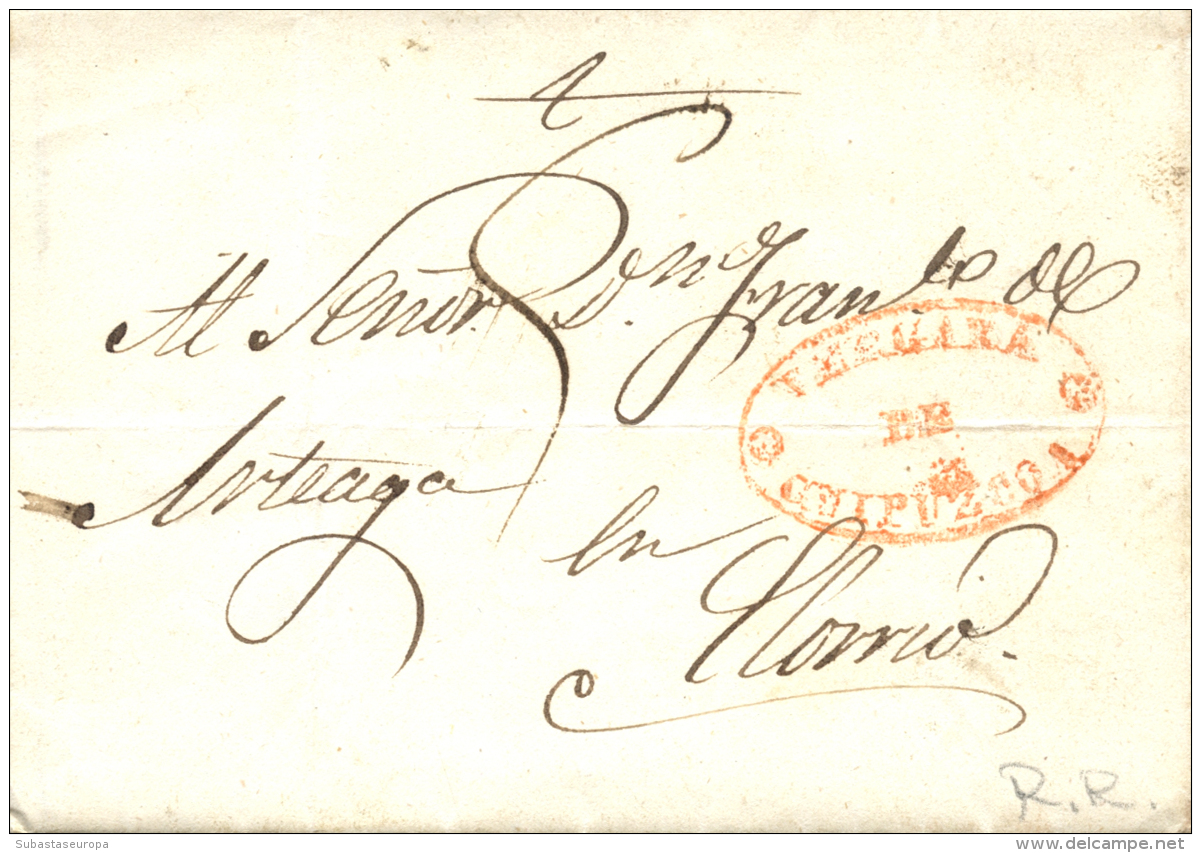 Al Señor D.n Fran.co de
VERGARA
DE
GUIPUZCOA
Arteaga
en
Elorrio.
R.R.
Subastaseuropa
delcampe.net